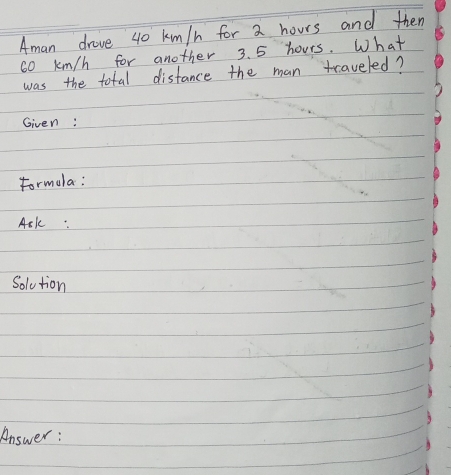 Aman drove 40 km/h for 2 hours and then
60 km/h for another 3.5 hours. What
was the total distance the man traveled?
Given :
Formula:
Ask :
Solution
Answer: